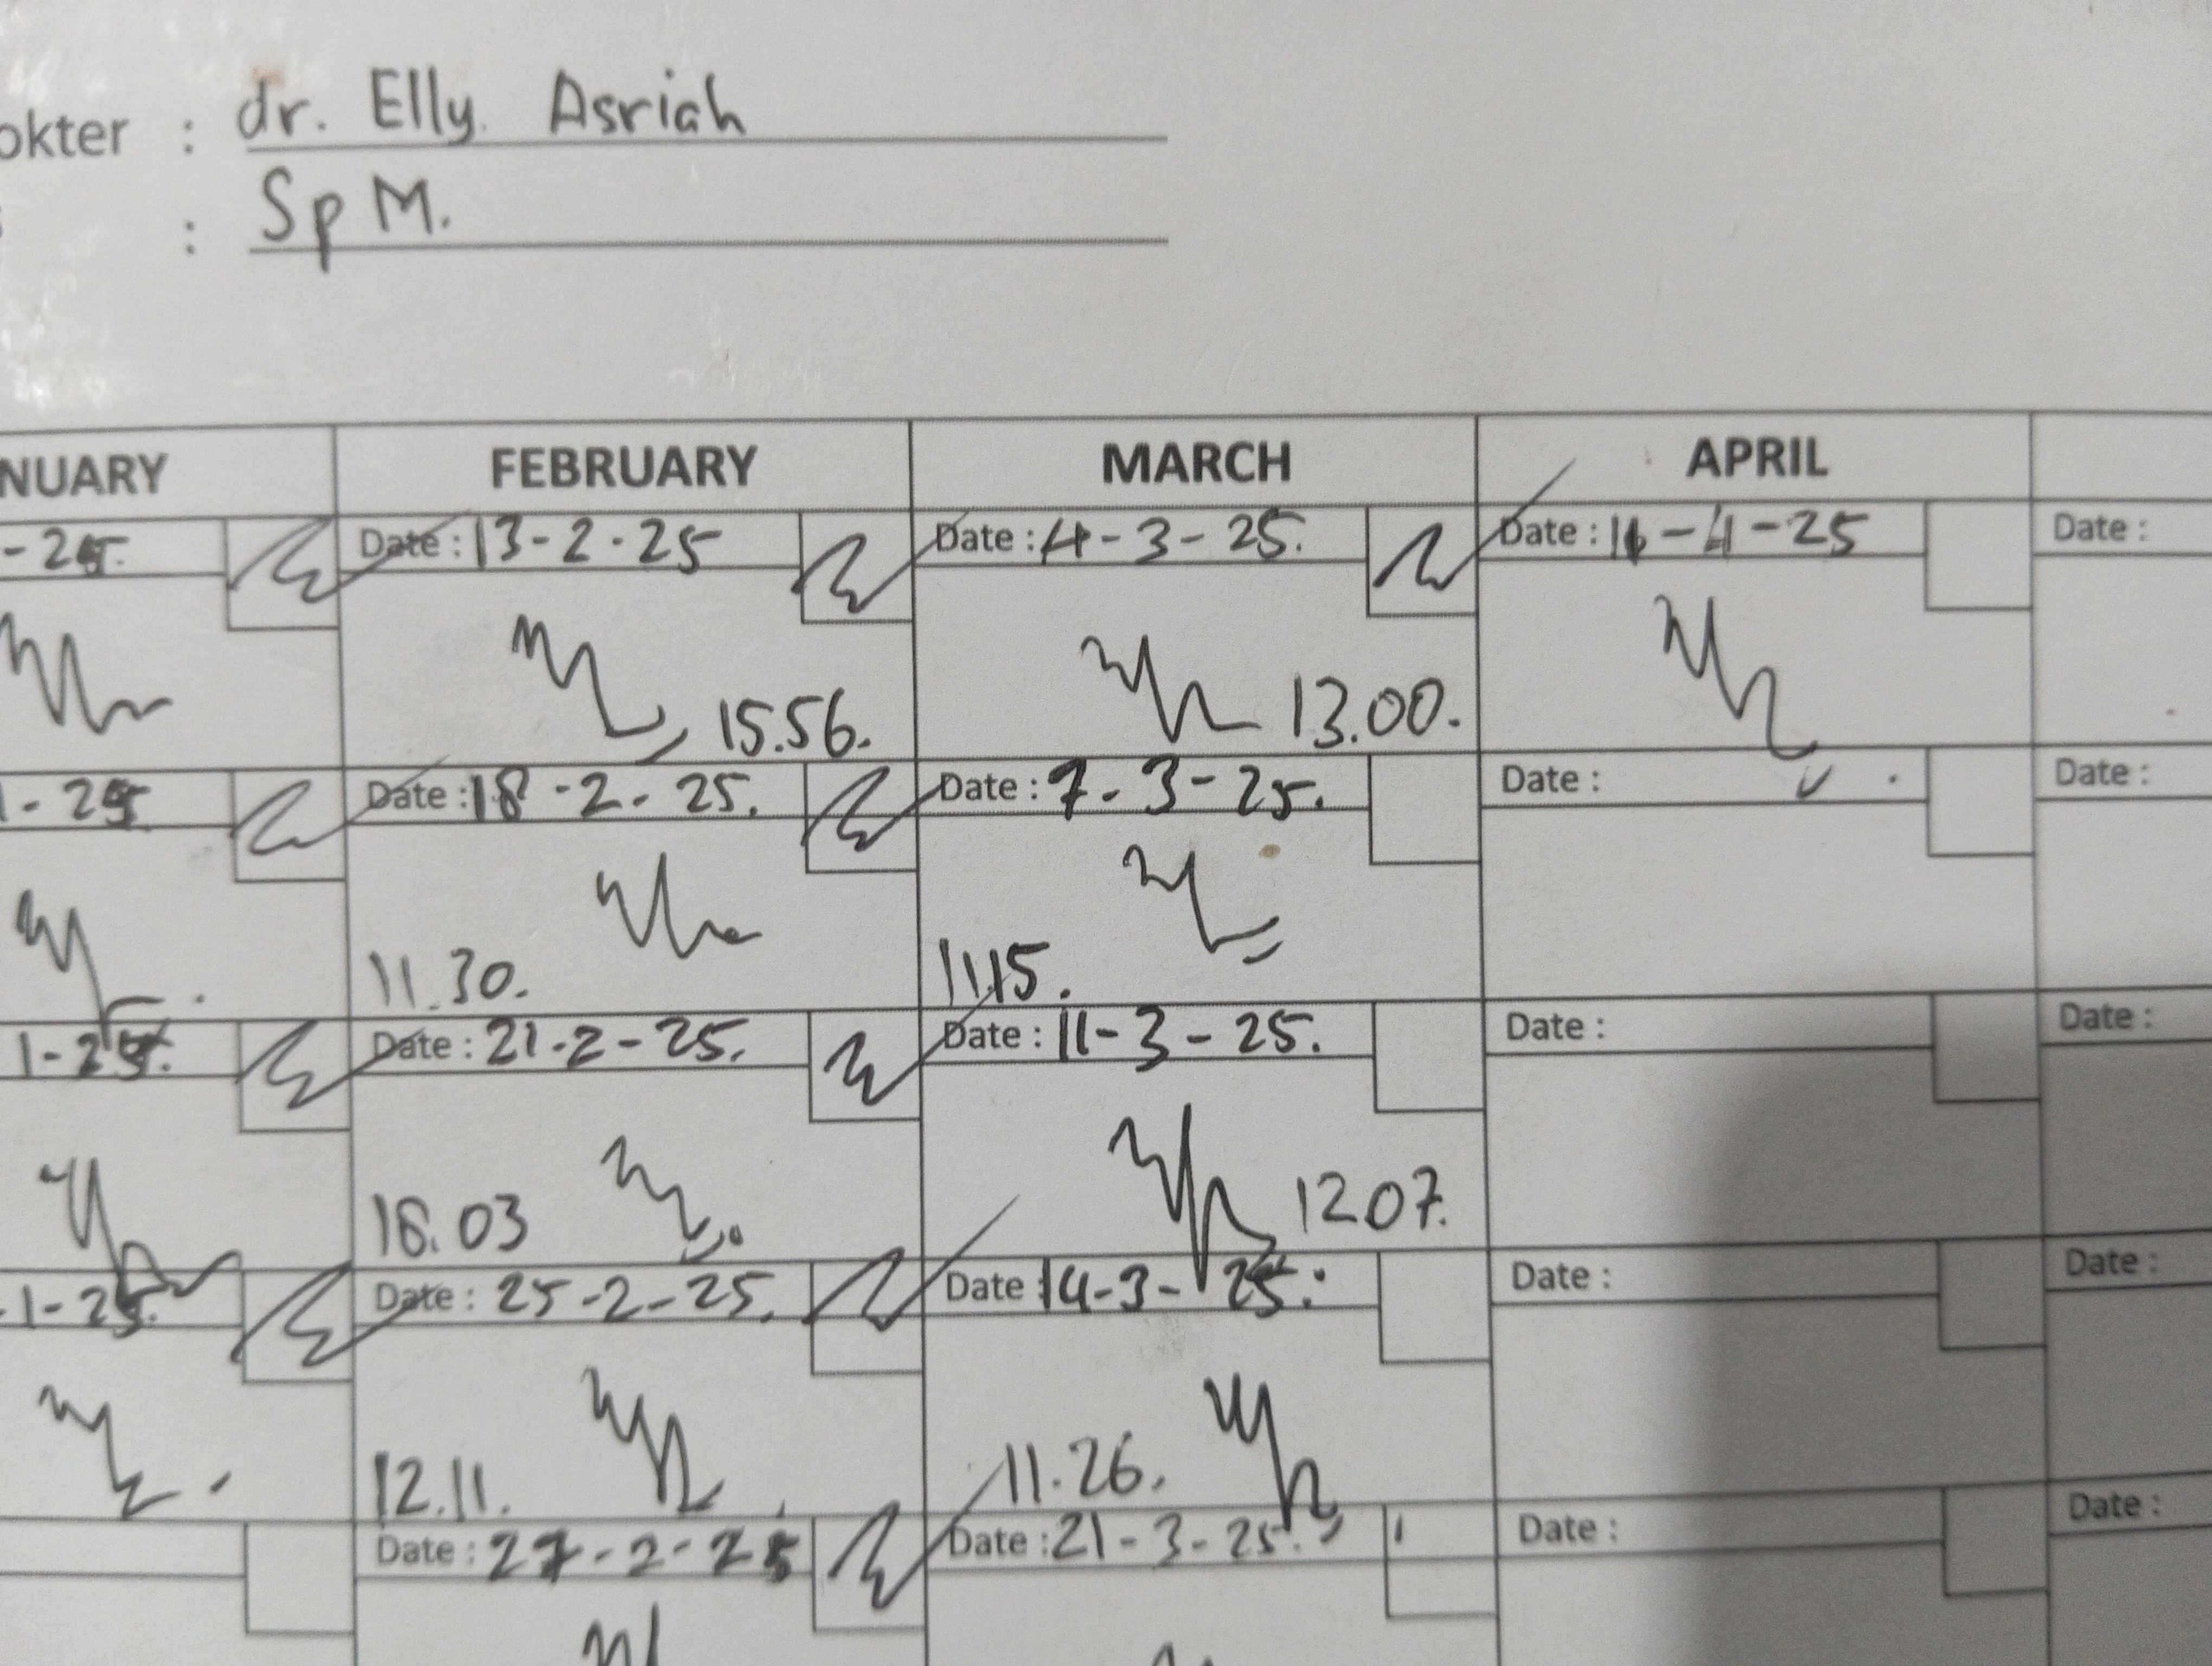 okter : dr. Elly Asriah
: Sp M.
NUARY FEBRUARY MARCH APRIL
-25. Date : 13-2-25 Date : 4-3-25. Date : -4-25 Date :
15.56. 13.00.
1-25 Date : 18-2-25. Date : 7-3-25. Date : Date :
11.30. 11.15.
1-25. Date : 21-2-25. Date : 11-3-25. Date : Date :
.03 12.07.
-1-25. Date : 25-2-25. Date : 14-3-25. Date : Date :
12.11. 11.26.
Date : 27-2-25 Date : 21-3-25. Date : Date :